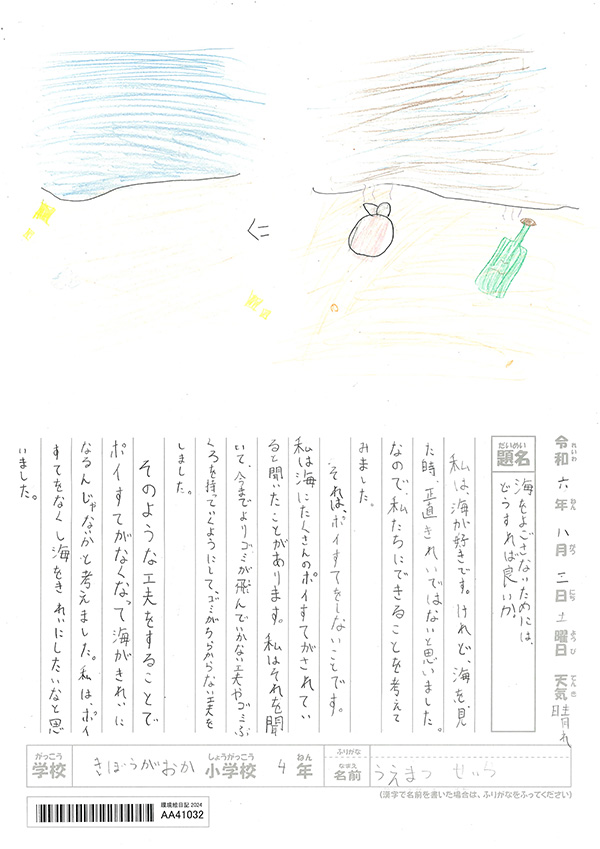 令和六年八月三日土曜日 天気晴れ
れいわ ねん がつ にち ようび てんき
だいめい
題名
海をよごさないためには、
どうすれば良いか?
私は、海が好きです。けれど、海を、見
た時、正直きれいではないと思いました。
なので、私たちにできることを考えて
みました。
それは、ポイすてをしないことです。
私は海にたくさんのポイすてがされてい
ると聞いたことがあります。私はそれを聞
いて、今までよりゴミが飛んでいかない工夫やゴミぶ
くろを持っていくようにして、ゴミがちらからない工夫を
しました。
そのような工夫をすることで
ポイすてがなくなって海がきれいに
なるんじゃないかと考えました。私は、ポイ
すてをなくし海をきれいにしたいなと思
いました。
がっこう しょうがっこう ねん ふりがな
学校 きぼうがおか 小学校 4年
なまえ
名前 うえまつ せいら
(漢字で名前を書いた場合は、ふりがなをふってください)
環境絵日記 2024
AA41032